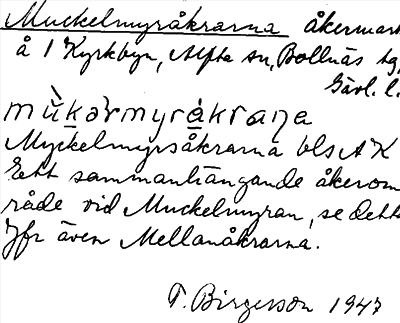 Muckelmyråkrarna åkermark
å 1 Kyrkbyn, Alfta sn, Bollnäs tg,
Gävl. l.
mùkəּrmyråkraɳa
Myckelmyrsåkrarna bls AK
Ett sammanhängande åkerom
råde vid Muckelmyran, se detta
Jfr även Mellanåkrarna.
T. Birgerson 1947